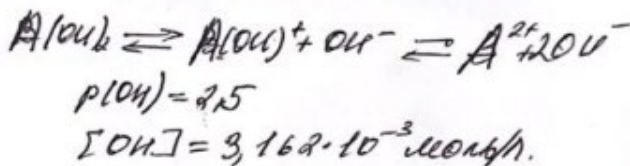 A(OH)₂ ⇌ A(OH)⁺ + OH⁻ ⇌ A²⁺ + 2OH⁻
p(OH) = 2,5
[OH] = 3,162·10⁻³ моль/л.